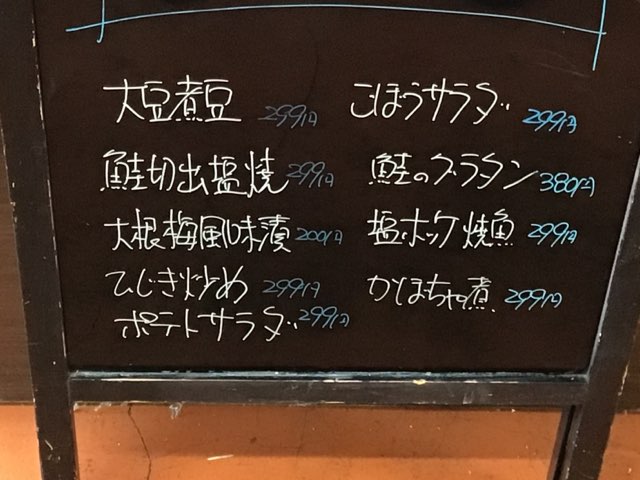 大豆煮豆 299円
鮭切出塩焼 299円
大根梅風味漬 200円
ひじき炒め 299円
ポテトサラダ 299円
ごぼうサラダ 299円
鮭のグラタン 380円
塩ホッケ焼魚 299円
かぼちゃ煮 299円